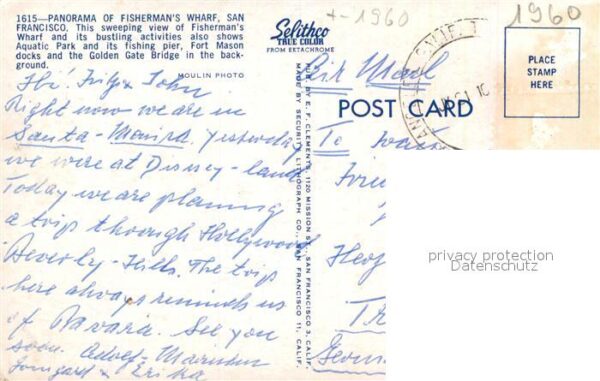 1615—PANORAMA OF FISHERMAN'S WHARF, SAN
FRANCISCO. This sweeping view of Fisherman's
Wharf and its bustling activities also shows
Aquatic Park and its fishing pier, Fort Mason
docks and the Golden Gate Bridge in the back-
ground.
MOULIN PHOTO
Right now we are in
Santa - Monica. Yesterday
we were at Disney - land.
Today we are planning
a trip through Hollywood
Beverly - Hills. The trip
here always reminds us
of Bavaria. See you
soon.
Erika
Selithco
TRUE COLOR
FROM EKTACHROME
PUB. BY E. F. CLEMENTS, 1120 MISSION ST., SAN FRANCISCO 3, CALIF.
MADE BY SECURITY LITHOGRAPH CO., SAN FRANCISCO 11, CALIF.
1960
1960
Air Mail
POST CARD
To
PLACE
STAMP
HERE
privacy protection
Datenschutz